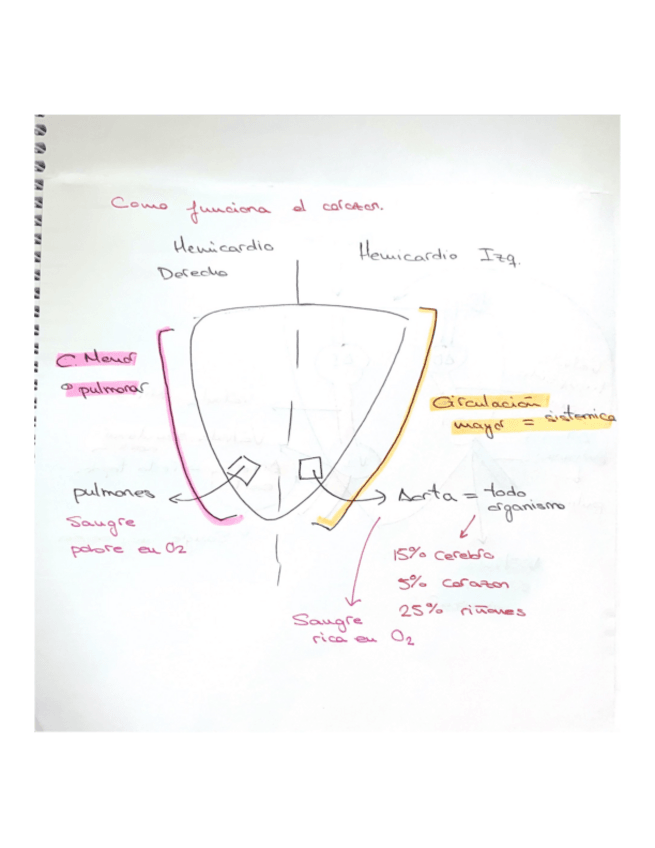 Como funciona el corazon.
Hemicardio
Derecho
Hemicardio Izq.
C. Menor
o pulmonar
Circulación
mayor = sistemica
pulmones
Sangre
pobre en O2
Aorta = todo
organismo
15% cerebro
5% corazon
25% riñones
Sangre
rica en O2